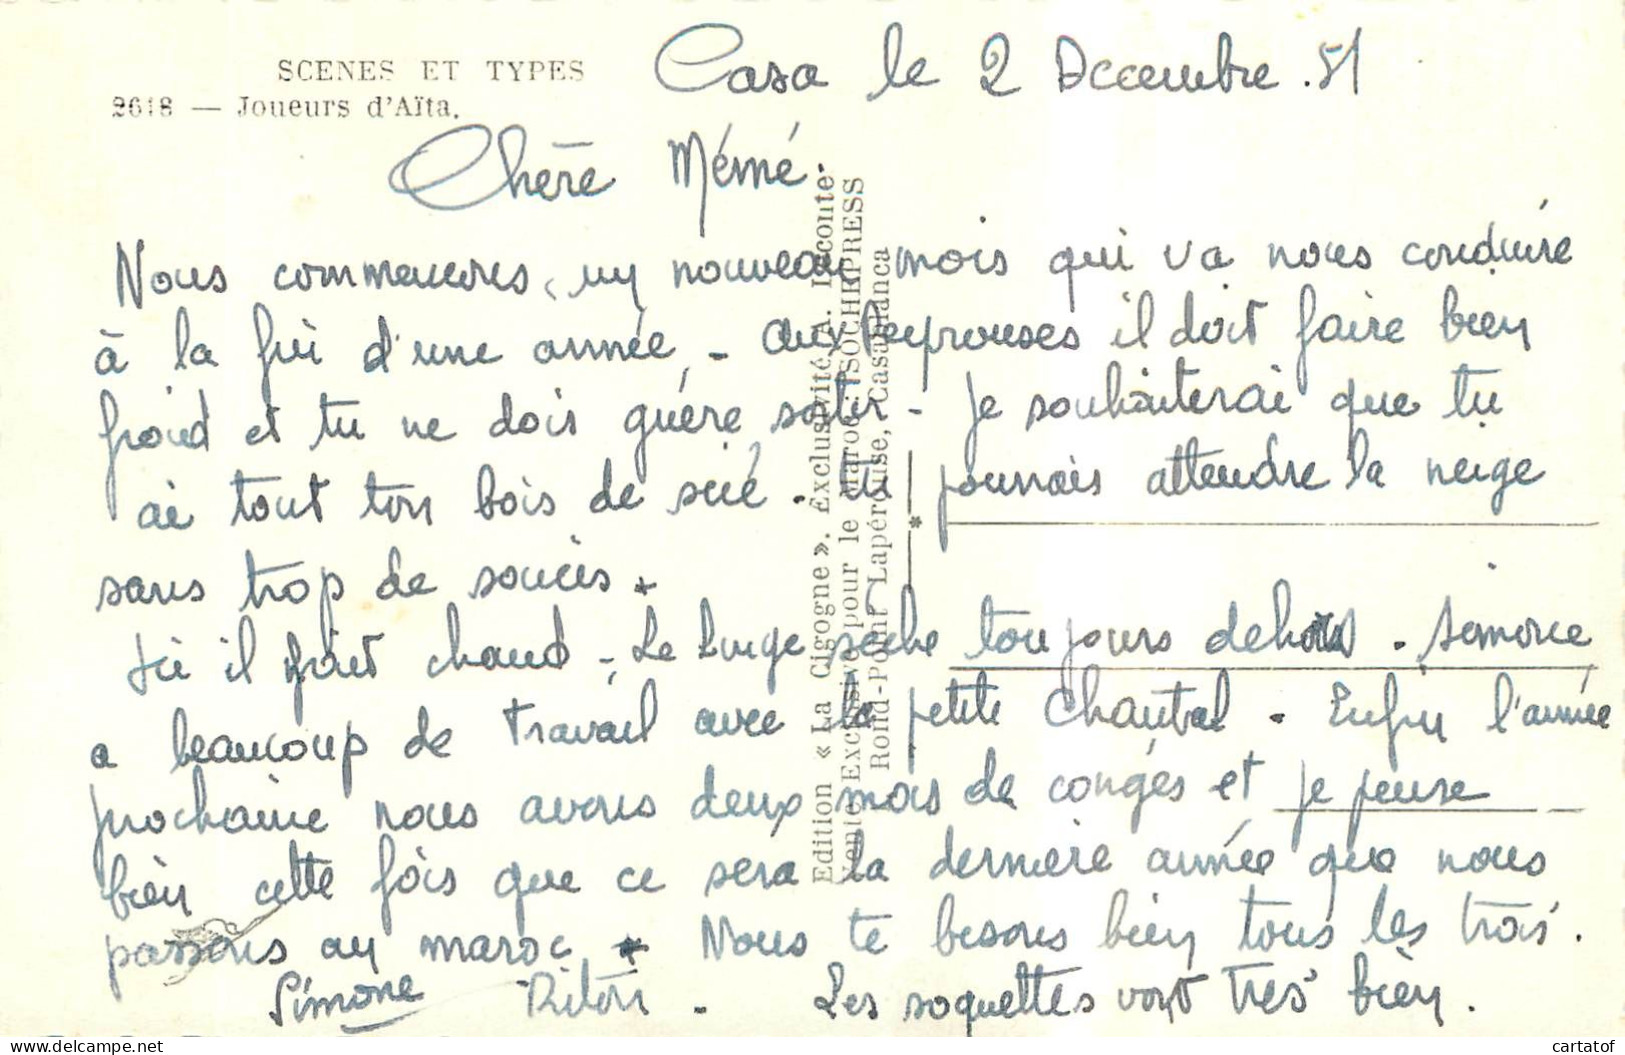 SCENES ET TYPES
2618 — Joueurs d'Aïta.
Casa le 2 Decembre .51
Chère Mémé.
Nous commencons un nouveau mois qui va nous conduire
à la fin d'une année - aux Peyrouses il doit faire bien
froid et tu ne dois guère sortir - Je souhaiterai que tu
ai tout ton bois de scié. tu pourrais attendre la neige
sans trop de soucis.
Ici il fait chaud - Le linge sèche toujours dehors. Simone
a beaucoup de travail avec la petite Chantal. Enfin l'année
prochaine nous avons deux mois de congés et je pense
bien cette fois que ce sera la dernière année que nous
passons au maroc. Nous te besons bien tous les trois.
Simone Riton - Les soquettes vont très bien.
Edition « La Cigogne ». Exclusivité A. Leconte
Vente Exclusive pour le Maroc : SOCHEPRESS
Rond-Point Lapérouse, Casablanca
cartatof